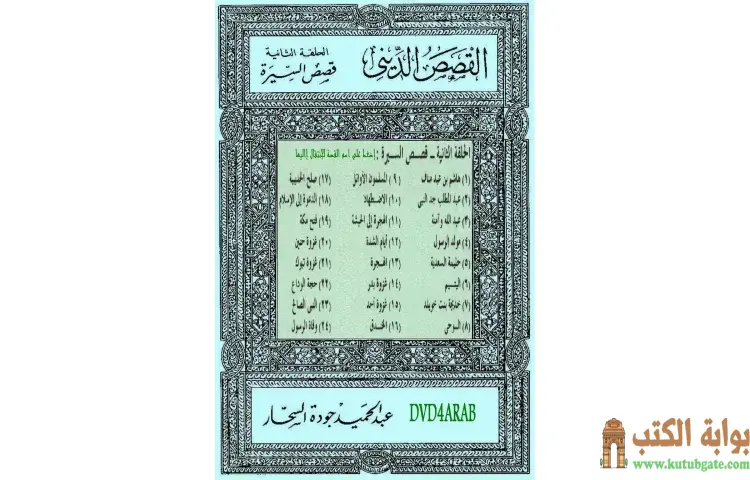 القصص الدينى
الحلقة الثانية
قصص السيرة
الحلقة الثانية - قصص السيرة : إضغط على اسم القصة للإنتقال إليها
(١) هاشم بن عبد مناف
(٢) عبد المطلب جد النبى
(٣) عبد الله وآمنة
(٤) مولد الرسول
(٥) حليمة السعدية
(٦) اليتيم
(٧) خديجة بنت خويلد
(٨) الوحى
(٩) المسلمون الأوائل
(١٠) الاضطهاد
(١١) الهجرة إلى الحبشة
(١٢) أيام الشدة
(١٣) الهجرة
(١٤) غزوة بدر
(١٥) غزوة أحد
(١٦) الخندق
(١٧) صلح الحديبية
(١٨) الدعوة إلى الإسلام
(١٩) فتح مكة
(٢٠) غزوة حنين
(٢١) غزوة تبوك
(٢٢) حجة الوداع
(٢٣) النبى الصالح
(٢٤) وفاة الرسول
DVD4ARAB
عبد الحميد جودة السحار
بوابة الكتب
www.kutubgate.com